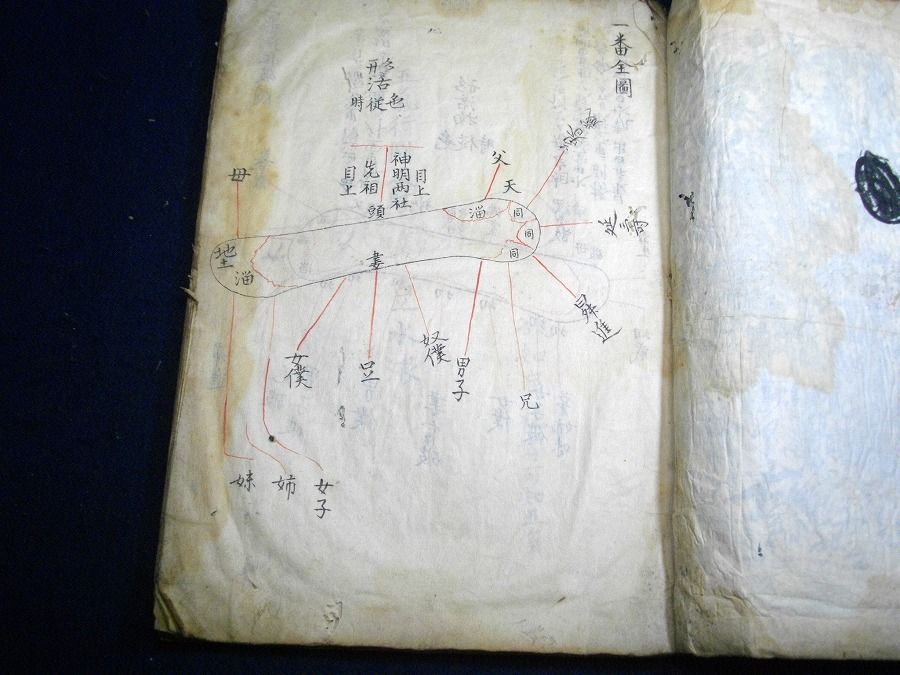 一番全圖
時従色
目上
神明両社
先祖
目上
頭
父
天
母
同
同
同
淄
淄
女僕
足
奴僕
男子
兄
昇進
妹
姉
女子